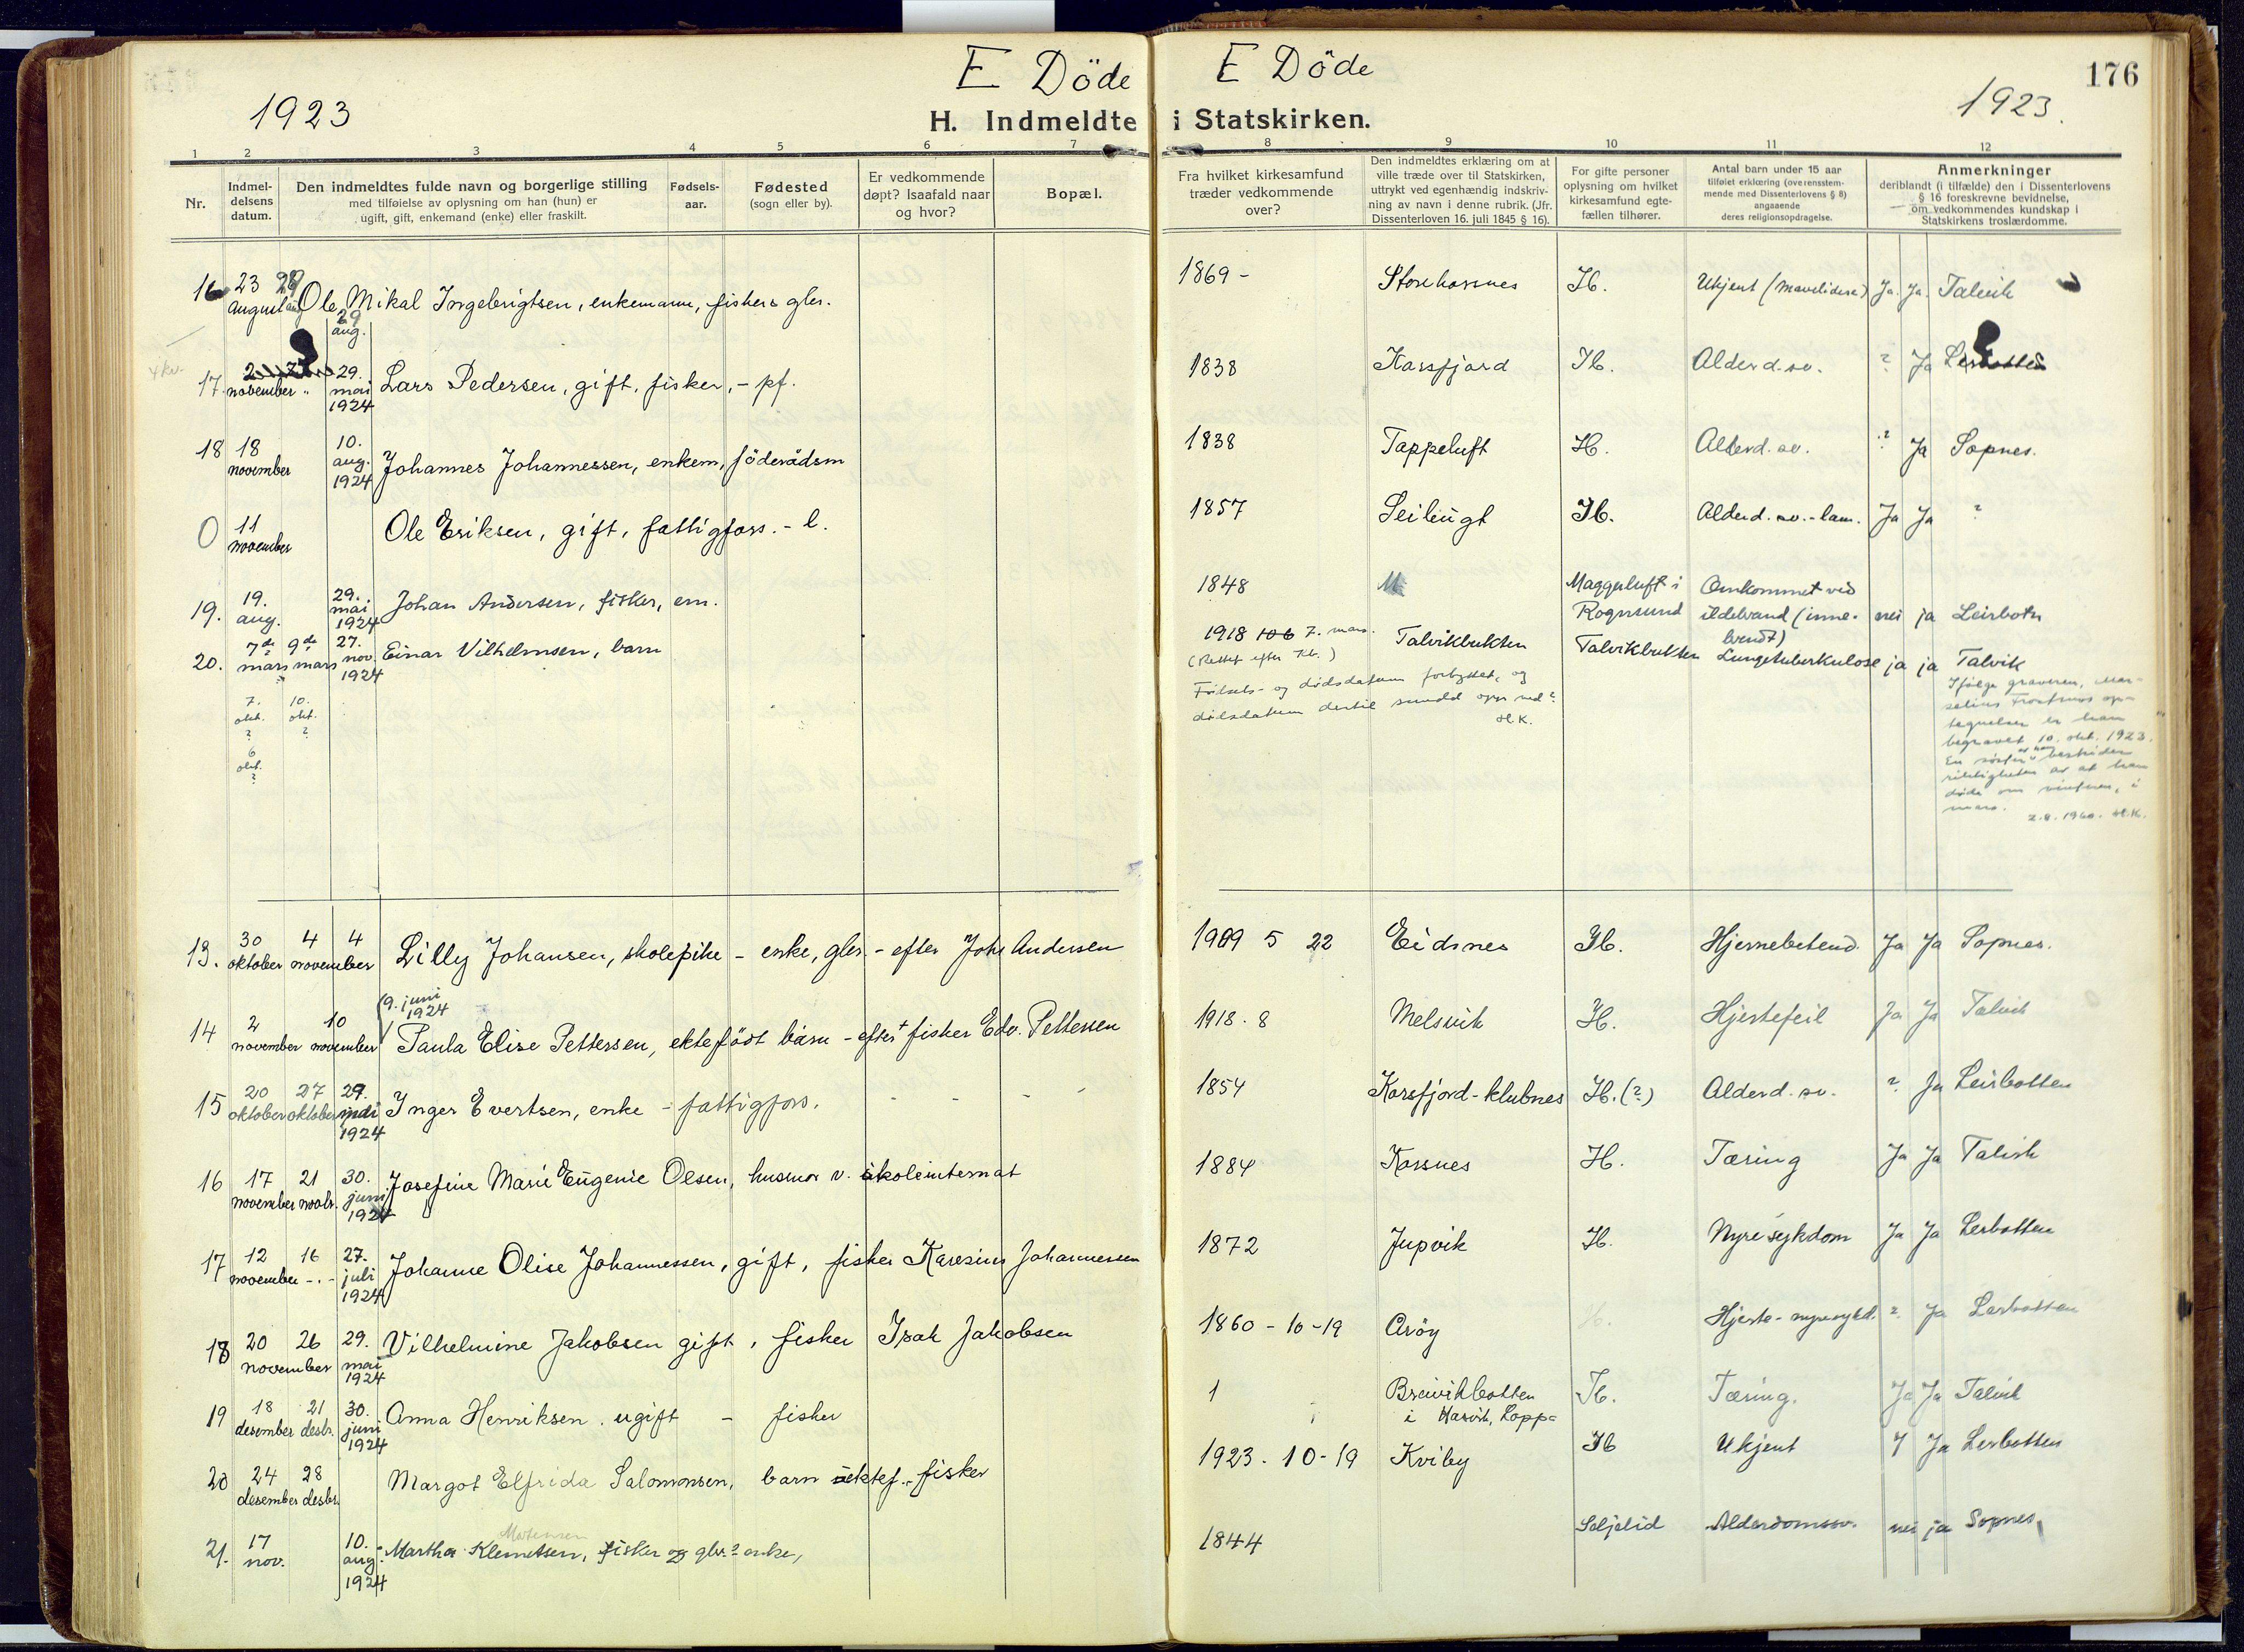 E Döde
E Döde
176
1923
1923.
H. Indmeldte i Statskirken.
1 2 3 4 5 6 7 8 9 10 11 12
Nr.
Indmel-
delsens
datum.
Den indmeldtes fulde navn og borgerlige stilling
med tilføielse av oplysning om han (hun) er
ugift, gift, enkemand (enke) eller fraskilt.
Fødsels-
aar.
Fødested
(sogn eller by).
Er vedkommende
døpt? Isaafald naar
og hvor?
Bopæl.
Fra hvilket kirkesamfund
træder vedkommende
over?
Den indmeldtes erklæring om at
ville træde over til Statskirken,
uttrykt ved egenhændig indskriv-
ning av navn i denne rubrik. (Jfr.
Dissenterloven 16. juli 1845 § 16).
For gifte personer
oplysning om hvilket
kirkesamfund egte-
fællen tilhører.
Antal barn under 15 aar
tilføiet erklæring (overensstem-
mende med Dissenterlovens § 8)
angaaende
deres religionsopdragelse.
Anmerkninger
deriblandt (i tilfælde) den i Dissenterlovens
§ 16 foreskrevne bevidnelse,
om vedkommendes kundskap i
Statskirkens troslærdomme.
16 23 august 29 aug. Ole Mikal Ingebrigtsen, enkemann, fisker & gbr. 1869 - Storekorsnes H. Ukjent (mavelidese) Ja. Ja. Talvik
17. november 29. mai 1924 Lars Pedersen, gift, fisker, - pf. 1838 Korsfjord H. Alderd. sv. ? Ja Lerbotten
18 18 november 10. aug. 1924 Johannes Johannessen, enkem, föderådsm 1838 Tappeluft H. Alderd. sv. ? Ja Sopnes.
0 11 november Ole Eriksen, gift, fattigfors. - l. 1857 Seilugt H. Alderd. sv. - lam. Ja Ja ?
19. 19. aug. 29. mai 1924 Johan Andersen, fisker, em. 1848 Maggeluft i Rognsund Omkommet ved ildebrand (inne- brendt) nei ja Leirbotn
20. 7de mars 9de mars 27. nov. 1924 Einar Vilhelmsen, barn 1918 106 7. mars. Talvikbukten Talvikbukten Lungetuberkulose ja ja Talvik
(Rettet efter Kb.)
7. okt. ? 10. okt. ?
6 okt. ?
Fødsels- og dødsdatum forbyttet, og
H.K.
Ifølge graveren,
begravet 10. okt. 1923.
døde om vinteren, i
mars.
2.8.1960. H.K.
13. 30 oktober 4 november 4 Lilly Johansen, skolepike - enke, gbr. - efter Johs Andersen 1909 5 22 Eidsnes H. Hjernebetend. Ja Ja Sopnes.
14 2 november 10 november (9. juni 1924 Paula Elise Pettersen, ektefödt barn - efter + fisker Edv. Pettersen 1918. 8 Melsvik H. Hjertefeil Ja Ja Talvik
15 20 oktober 27 oktober 29. mai 1924 Inger Evertsen, enke - fattigfors. - - - - 1854 Korsfjord-klubnes H. (?) Alderd. sv. ? Ja Leirbotten
16 17 november 21 novbr. 30. juni 1924 Josefine Marie Eugenie Olsen, husmor v. skoleinternat 1884 Korsnes H. Tæring Ja Ja Talvik
17 12 november 16 -.- 27. juli 1924 Johanne Olise Johannessen, gift, fisker Karesius Johannessen 1872 Jupvik H. Nyresykdom Ja Ja Lerbotten
18 20 26 november 29. mai 1924 Vilhelmine Jakobsen gift, fisker Isak Jakobsen 1860 - 10 - 19 Aröy H. Hjerte- nyresykd. ? Ja Lerbotten
19 18 desember 21 desbr. 30. juni 1924 Anna Henriksen. ugift - fisker 1 Breivikbotten i Hasvik, Loppa H. Tæring. Ja Ja Talvik
20 24 desember 28 desbr. Margot Elfrida Salomonsen, barn uektef. - fisker 1923. 10 - 19 Kviby H Ukjent Ja Lerbotten
21. 17 nov. 10. aug. 1924 Martha Klemetsen, Mortensen fisker og gbr.? enke, 1844 Seljelid Alderdomssv. nei ja Sopnes